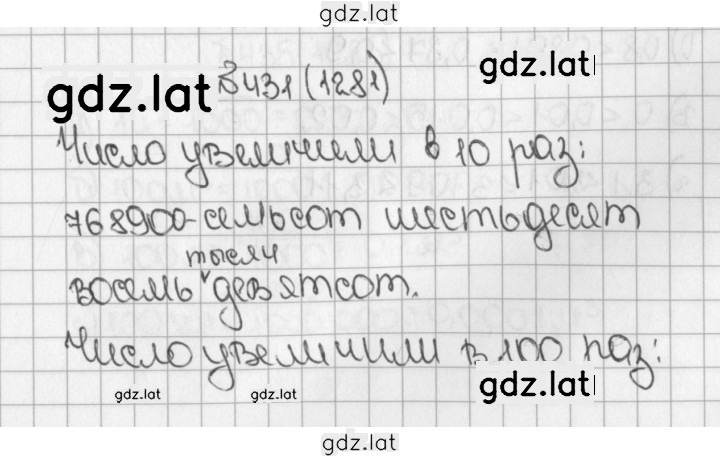 gdz.lat
gdz.lat В431 (1281) gdz.lat
Число увеличили в 10 раз:
768900-семьсот шестьдесят
тысяч
восемь ᵛ девятсот.
Число увеличили в 100 раз:
gdz.lat gdz.lat gdz.lat
gdz.lat